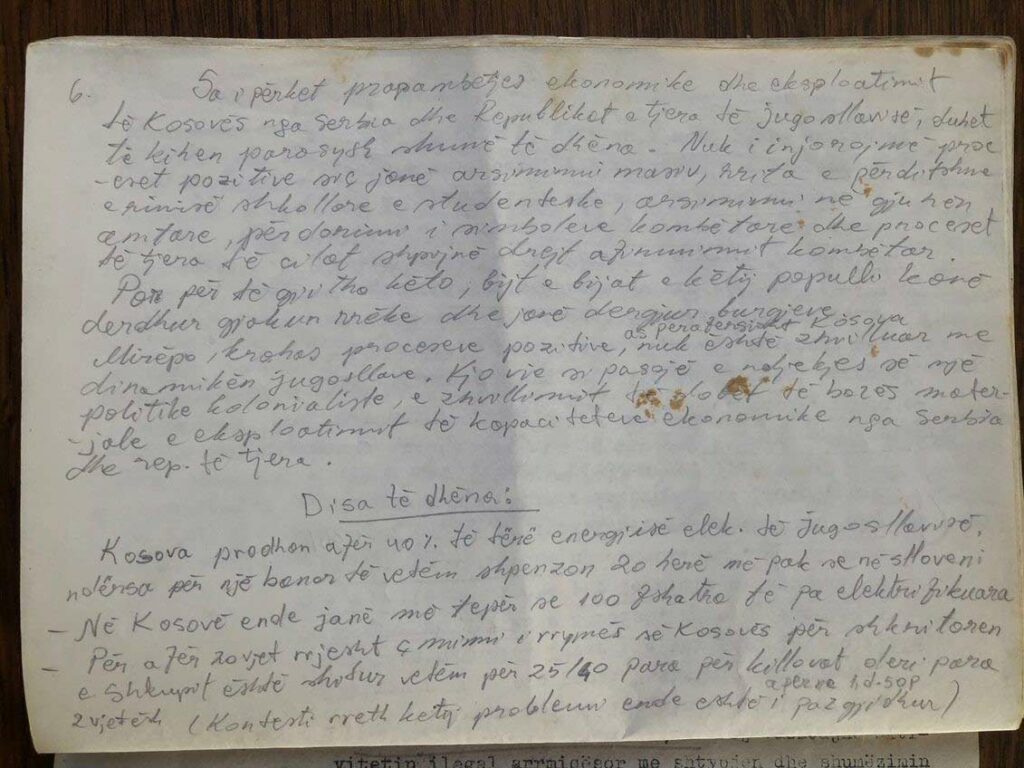 6. Sa i përket prapambetjes ekonomike dhe eksploatimit
të Kosovës nga Serbia dhe Republikat e tjera të Jugosllavisë, duhet
të kihen parasysh shumë të dhëna. Nuk i injorojmë proc
-eset pozitive siç janë arsimimi masiv, rritja e përditshme
e rinisë shkollore e studenteske, arsimimi në gjuhën
amtare, përdorimi i simboleve kombëtare dhe proceset
të tjera të cilat shpijnë drejt afirmimit kombëtar.
Por për të gjitha këto, bijt e bijat e këtij populli kanë
derdhur gjakun rrëke dhe janë dergjur burgjeve.
Mirëpo, krahas proceseve pozitive, as përafërsisht Kosova nuk është zhvilluar me
dinamikën jugosllave. Kjo vie si pasojë e ndjekjes së një
politike kolonialiste, e zhvillimit të dobët të bazës mater-
-jale e eksploatimit të kapaciteteve ekonomike nga Serbia
dhe rep. të tjera.
Disa të dhëna:
Kosova prodhon afër 40% të tërë energjisë elek. të Jugosllavisë,
ndërsa për një banor të vetëm shpenzon 20 herë më pak se në Slloveni
- Në Kosovë ende janë më tepër se 100 fshatra të pa elektrifikuara
- Për afër 20 vjet rrjesht çmimi i rrymës së Kosovës për shkritoren
e Shkupit është shitur vetëm për 25/40 para për killovat deri para
2 vjetësh (Kontesti rreth këtij problemi ende është i pazgjidhur)
vitetin ilegal armiqësor me shtypjen dhe shumëzimin